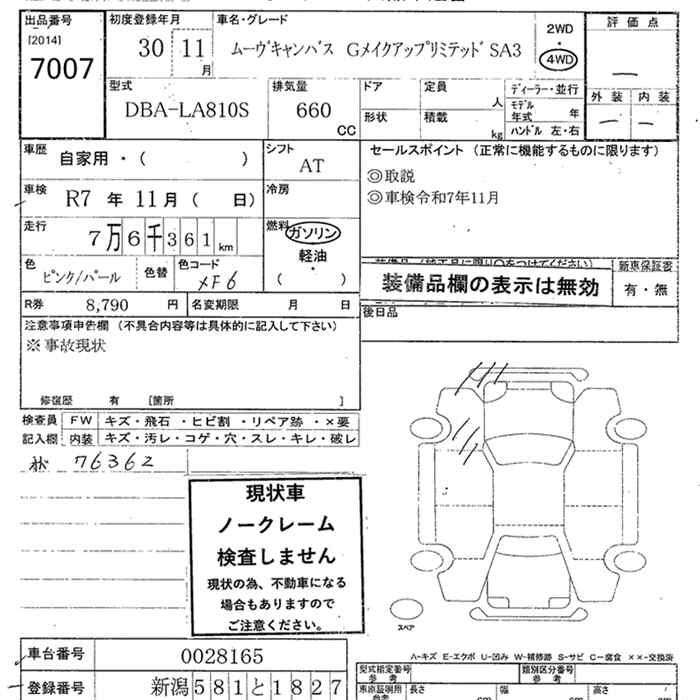 出品番号 初度登録年月 車名・グレード 評価点
[2014] 30 11 月 ムーヴキャンバス GメイクアップリミテッドSA3 2WD ・ 4WD
7007 ー
型式 排気量 ドア 定員 人 ディーラー・並行 外装 内装
DBA-LA810S 660 CC 形状 積載 kg モデル年式 年 ー ー
ハンドル 左・右
車歴 自家用・( ) シフト AT セールスポイント (正常に機能するものに限ります)
◎取説
車検 R7 年 11月 ( 日) 冷房 ◎車検令和7年11月
走行 7万6千361km 燃料 ガソリン・軽油・( )
色 ピンク/パール 色替 色コード XF6 新車保証書
装備品欄の表示は無効 有・無
R券 8,790 円 名変期限 月 日 後日品
注意事項申告欄 (不具合内容等は具体的に記入して下さい)
※事故現状
修復歴 有 [箇所 ]
検査員記入欄 FW キズ・飛石・ヒビ割・リペア跡・×要
内装 キズ・汚レ・コゲ・穴・スレ・キレ・破レ
76362
現状車
ノークレーム
検査しません
現状の為、不動車になる
場合もありますので
ご注意ください。
スペア
A-キズ E-エクボ U-凹み W-補修跡 S-サビ C-腐食 ××-交換済
車台番号 0028165 型式指定番号 参考 類別区分番号 参考
登録番号 新潟581と1827 車原証明用 参考 長さ cm 幅 cm 高さ